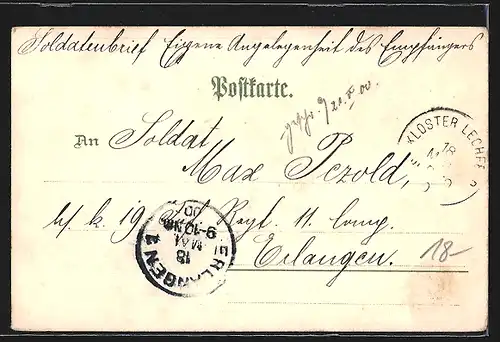 Soldatenbrief Eigene Angelegenheit des Empfängers
Postkarte.
20. V 00
An Soldat
KLOSTER LECHF
18
Max Pezold,
19. Inf. Regt. 11. Comp.
Erlangen.
ERLANGEN 1
18
MAI
9-10 NM
00
18-